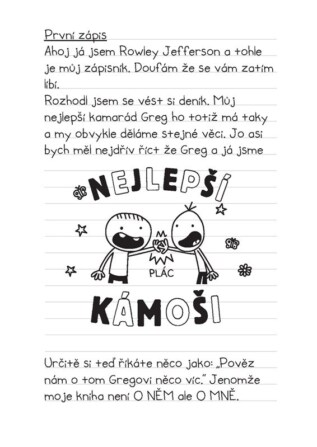 První zápis
Ahoj já jsem Rowley Jefferson a tohle
je můj zápisník. Doufám že se vám zatím
líbí.
Rozhodl jsem se vést si deník. Můj
nejlepší kamarád Greg ho totiž má taky
a my obvykle děláme stejné věci. Jo asi
bych měl nejdřív říct že Greg a já jsme
NEJLEPŠÍ
PLÁC
KÁMOŠI
Určitě si teď říkáte něco jako: „Pověz
nám o tom Gregovi něco víc.“ Jenomže
moje kniha není O NĚM ale O MNĚ.